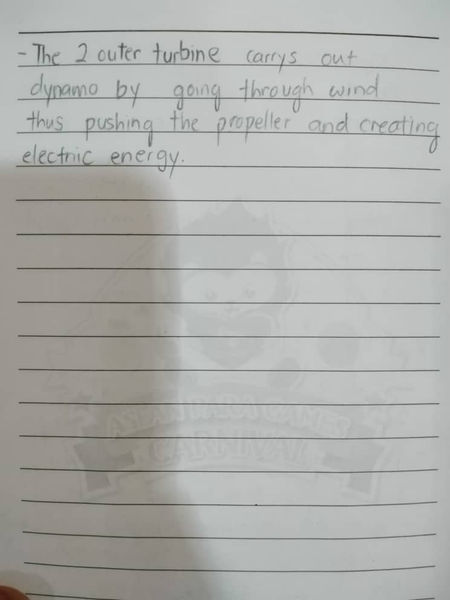 - The 2 outer turbine carrys out
dynamo by going through wind
thus pushing the propeller and creating
electric energy.
ASEAN PARA GAMES
CARNIVAL